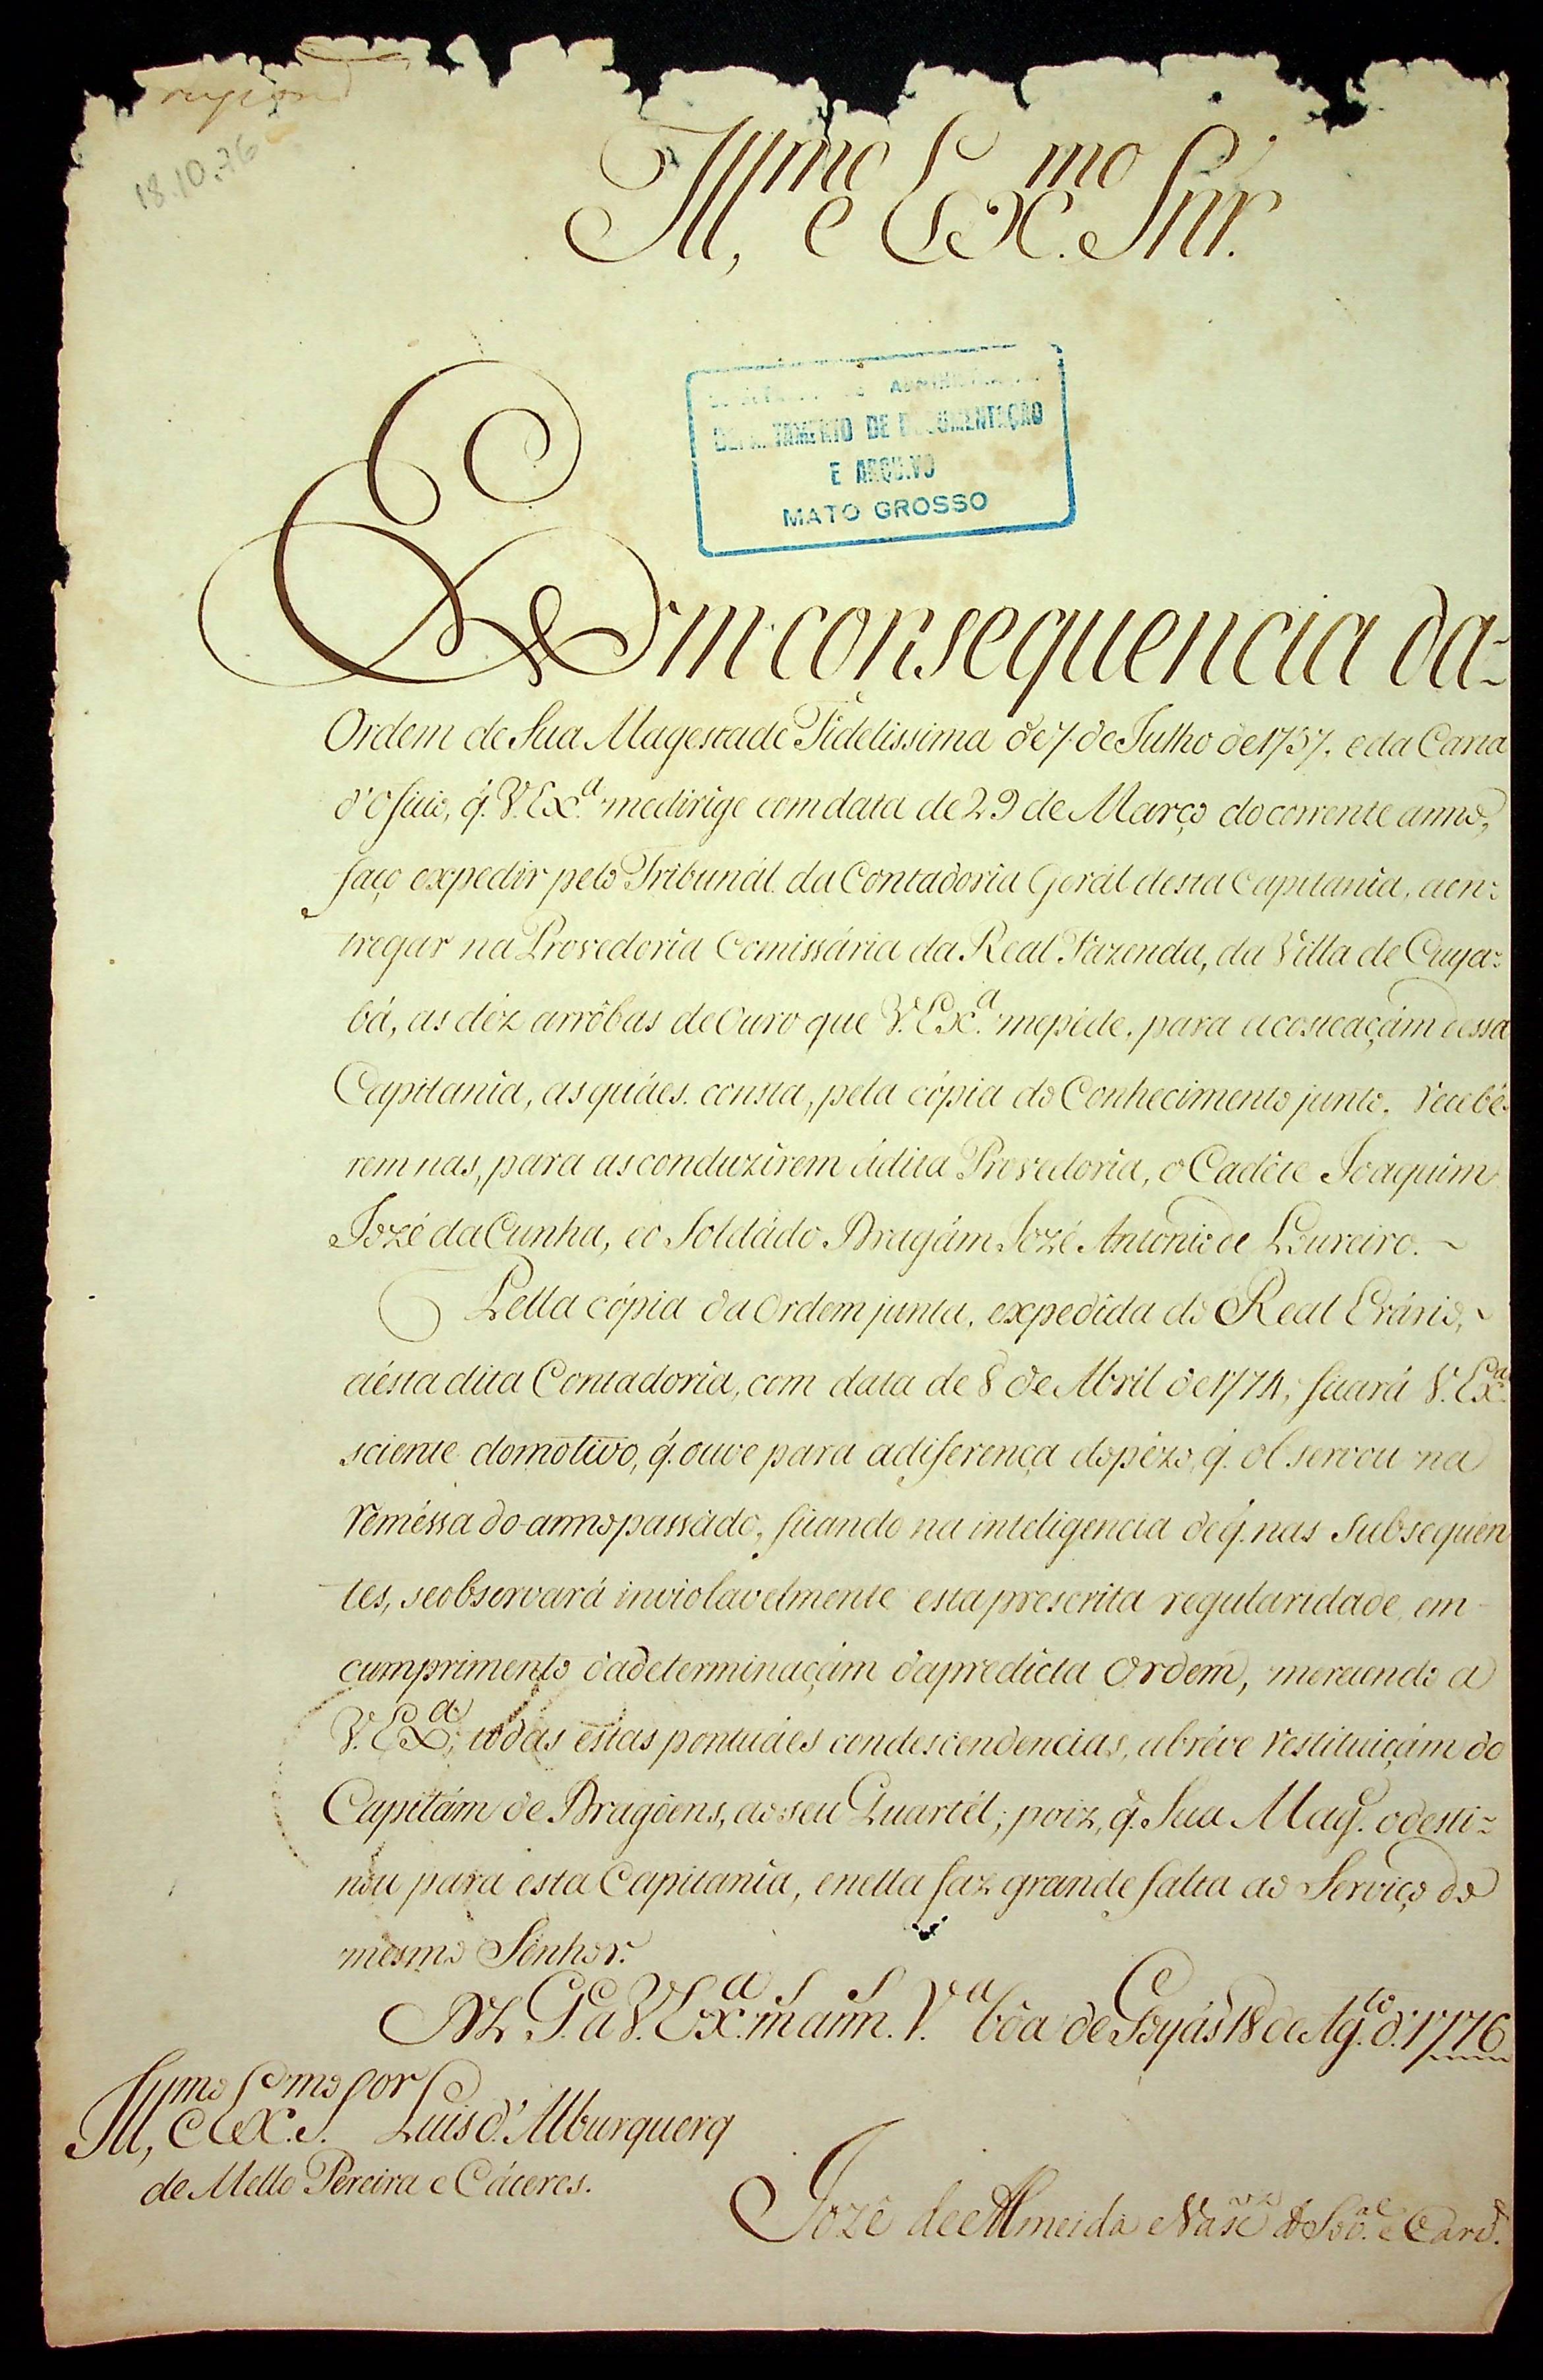 18.10.76
Ill,mo e Exc.mo Snr.
DEPARTAMENTO DE DOCUMENTAÇÃO
E ARQUIVO
MATO GROSSO
Em consequencia da-
Ordem de Sua Magestade Fidelissima de 7. de Julho de 1757. e da Carta
d'Oficio, q̃. V. Exc.a me dirige com data de 29 de Março do corrente anno,
faço expedir pelo Tribunál da Contadoria Gerál desta Capitanîa, a en-
tregar na Provedoria Comissária da Real Fazenda, da Villa de Cuya-
bá, as déz arrôbas de Ouro que V. Exc.a me pede. para a coactaçám dessa
Capitanîa, as quáes. consta, pela cópia do Conhecimento junto. recebé-
rem nas, para as conduzîrem á dita Provedoria, o Cadête Joaquim
Jozé da Cunha, e o Soldádo Dragám Jozé Antonio de Loureiro. ~
Pella cópia da Ordem junta. expedîda do Real Erário, ~
a ésta dita Contadoria, com data de 8 de Abril de 1774, ficará V. Exa.
sciente do motivo, q̃. ouve para a diferença do pêzo, q̃. observou na
reméssa do anno passádo, ficando na inteligencia de q̃. nas subsequen
tes, se observará inviolavelmente esta prescrita regularidade, em
cumprimento da determinaçám da predicta Ordem, merecendo a
V. Exa; todas estas pontuáes condescendencias, a bréve restituiçám do
Capitám de Dragôens, ao seu Quartél; poiz, q̃. Sua Mag.e o desti-
nou para esta Capitanîa, e nella faz grande falta ao Serviço do
mesmo Senhor.
Dz. G.e a V. Exc.a m.s ann.s V.a bôa de Goyás 18 de Ag.to d'. 1776
Ill,mo e Exc.mo S.or Luis d'. Alburquerq
de Mello Pereira e Cáceres.
Jozê de Almeida Vasc.os de Sov.al e Carv.o